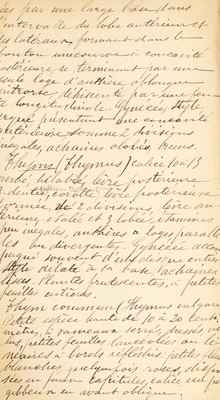 sées par une large base dans
intervalle du lobe antérieur et
les latéraux, formant dans le
bouton une courbe à concavité
postérieure se terminant par une
seule loge d'anthère oblongue
introrse déhiscente par une fen
te longitudinale. Gynécée, style
arqué présentant une concavité
antérieure, sommet 2 divisions
inégales, achaines obovés, bruns.
Thym (Thymus) calice 10 à 13
nervé, bilabié, lèvre postérieure
3 dentée, corolle lèvre postérieure
formée de 2 divisions, lèvre an
térieure étalée et 3 lobée, étamines
peu inégales, anthères à loges parallè
les ou divergentes. Gynécée accom
pagné souvent d'un disque entier
style dilaté à sa base, achaines
lisses. Plantes frutescentes, à petites
feuilles entières.
Thym commun (Thymus vulgaris)
Petite espèce haute de 10 à 20 centi
mètres, à rameaux serrés, dressés, ve
petites feuilles lancéolées ou li
néaires à bords réfléchis, petites fleurs
blanches quelquefois roses, dispo
sées en faux capitules, calice
gibbeux en avant oblique,